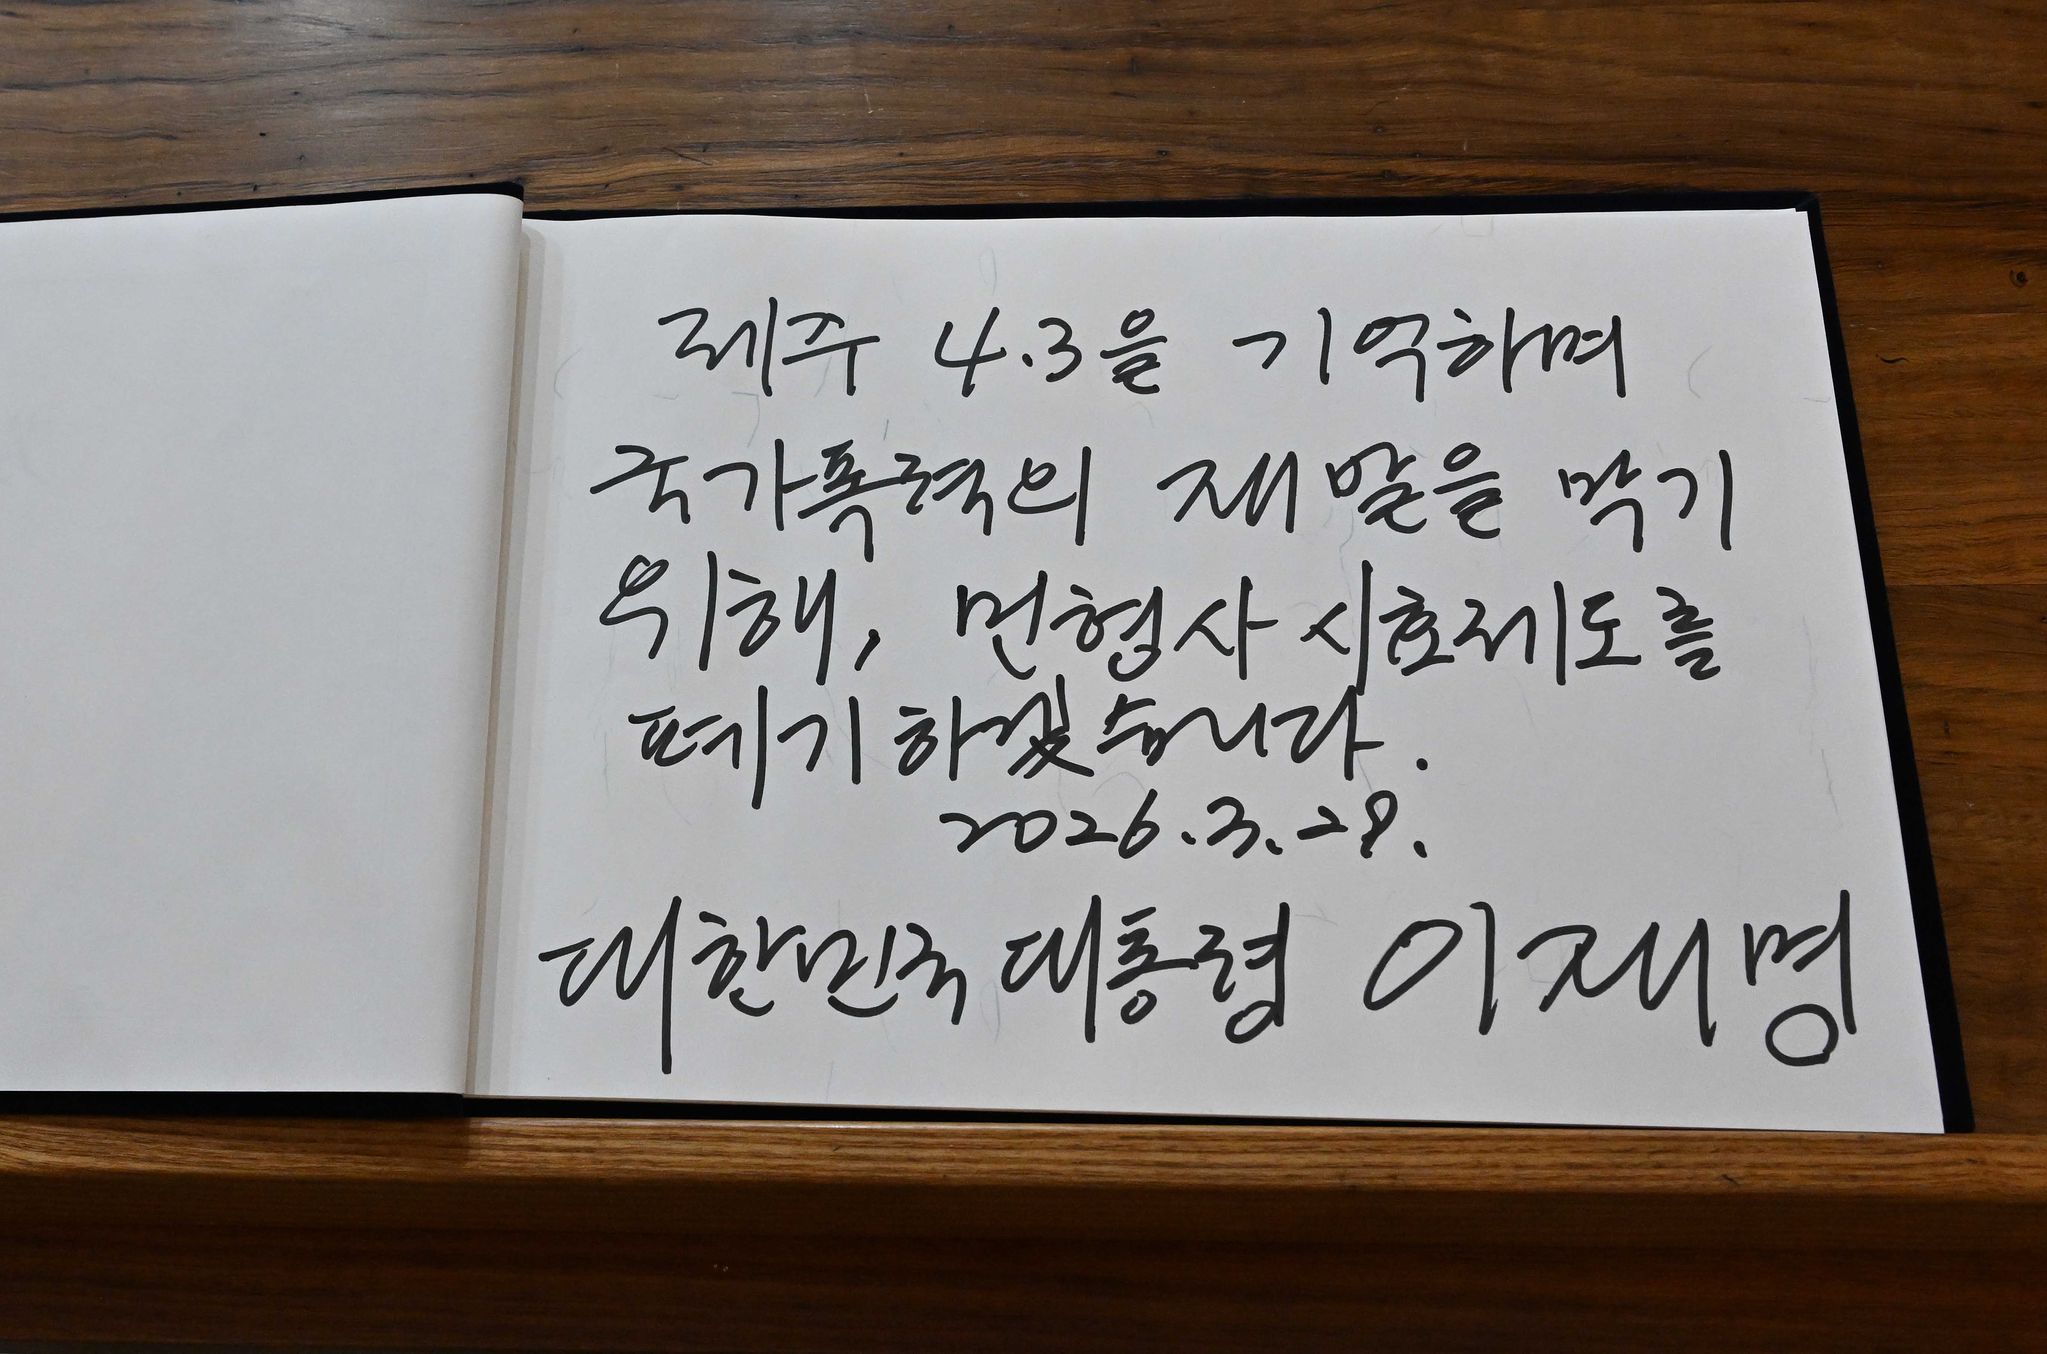 제주 4.3을 기억하며
국가폭력의 재발을 막기
위해, 민형사 시효제도를
폐기하겠습니다.
2026.3.29.
대한민국 대통령 이재명